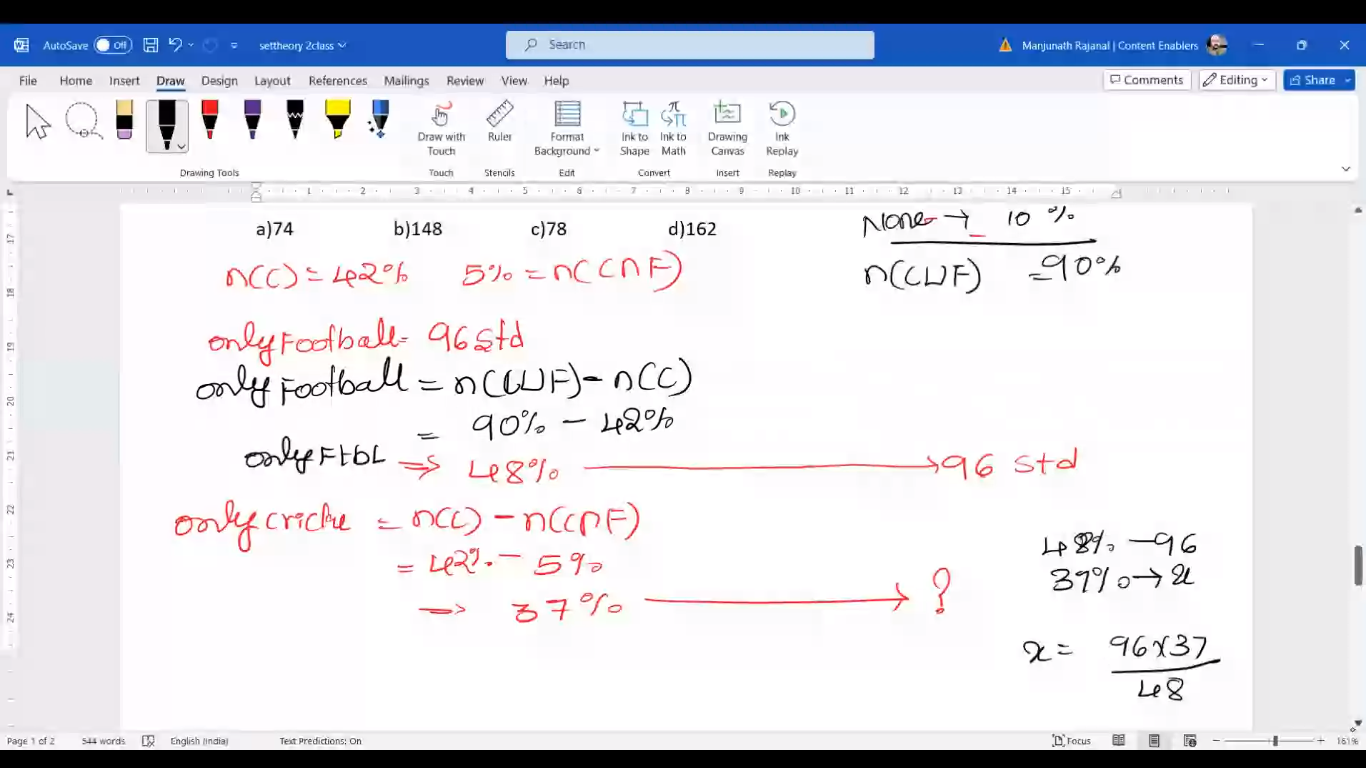 AutoSave Off settheory 2class Search Manjunath Rajanal | Content Enablers
File Home Insert Draw Design Layout References Mailings Review View Help Comments Editing Share
Draw with Touch Ruler Format Background Ink to Shape Ink to Math Drawing Canvas Ink Replay
Drawing Tools Touch Stencils Edit Convert Insert Replay
1 2 3 4 5 6 7 8 9 10 11 12 13 14 15
17
18
19
20
21
22
23
24
None → 10 %
a)74 b)148 c)78 d)162
n(C∪F) = 90%
n(C) = 42% 5% = n(C∩F)
only Football = 96 Std
only Football = n(C∪F) - n(C)
= 90% - 42%
only FtbL ⇒ 48% → 96 std
only cricke = n(C) - n(C∩F)
= 42% - 5%
→ 37% → ?
48% - 96
37% → x
x = 96x37
48
Page 1 of 2 544 words English (India) Text Predictions: On Focus 161%